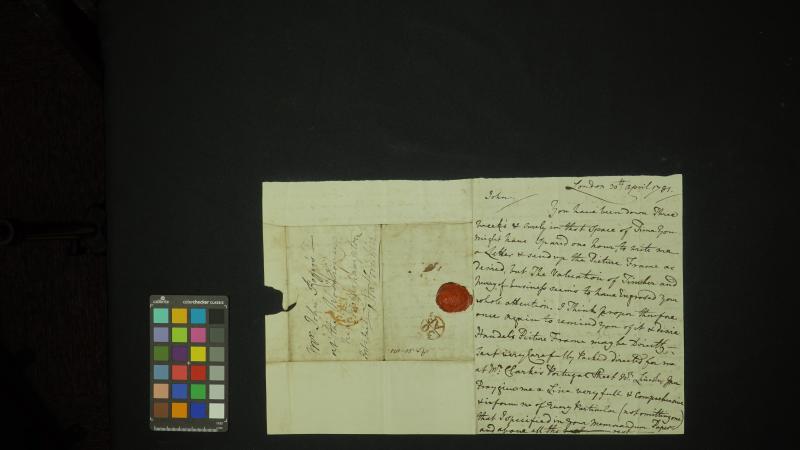 London 30th april 1781.
John
You have been down Three
weeks & surely in that space of Time you
might have spared one hour to write me
a Letter & send up the Picture Frame as
desired, but The Valuation of Timber and
hurry of business seems to have Ingrosed your
whole attention. I Think proper therefore
once again to remind you of it & desire
Handels Picture Frame may be Directly
sent very Carefully Packed directed for me
at Mr. Clarke's Portugal Street Lincolns Inn
Pray give me a Line very full & Comprehensive
& inform me of Every Particular (not omitting one)
that I specified in your Memorandum Paper
and above all the rest
Mr. John
at the
near
colorchecker CLASSIC